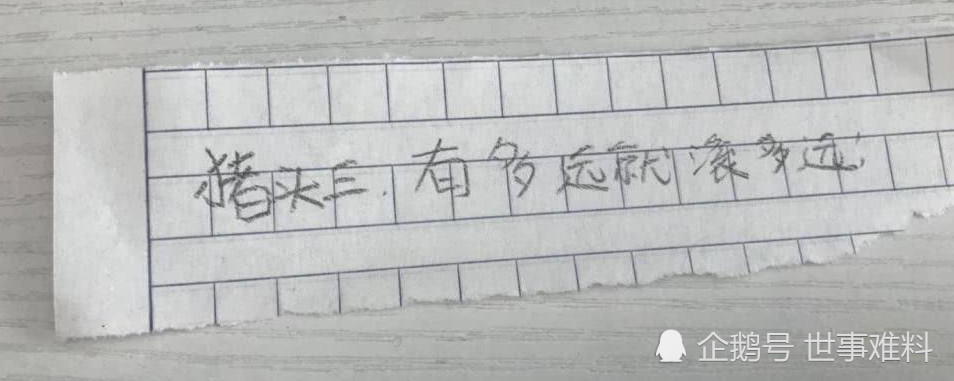 猪头三.有多远就滚多远
企鹅号 世事难料